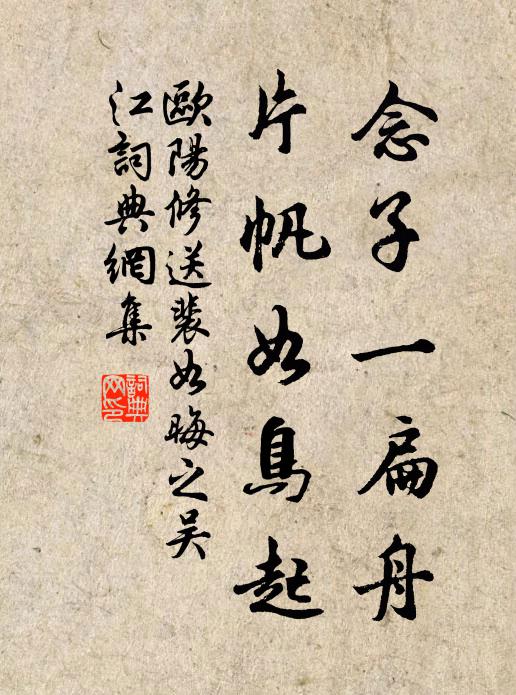 念子一扁舟
片帆如鳥起
歐陽修送裴如晦之吴
江詞典網集
詞典
网印